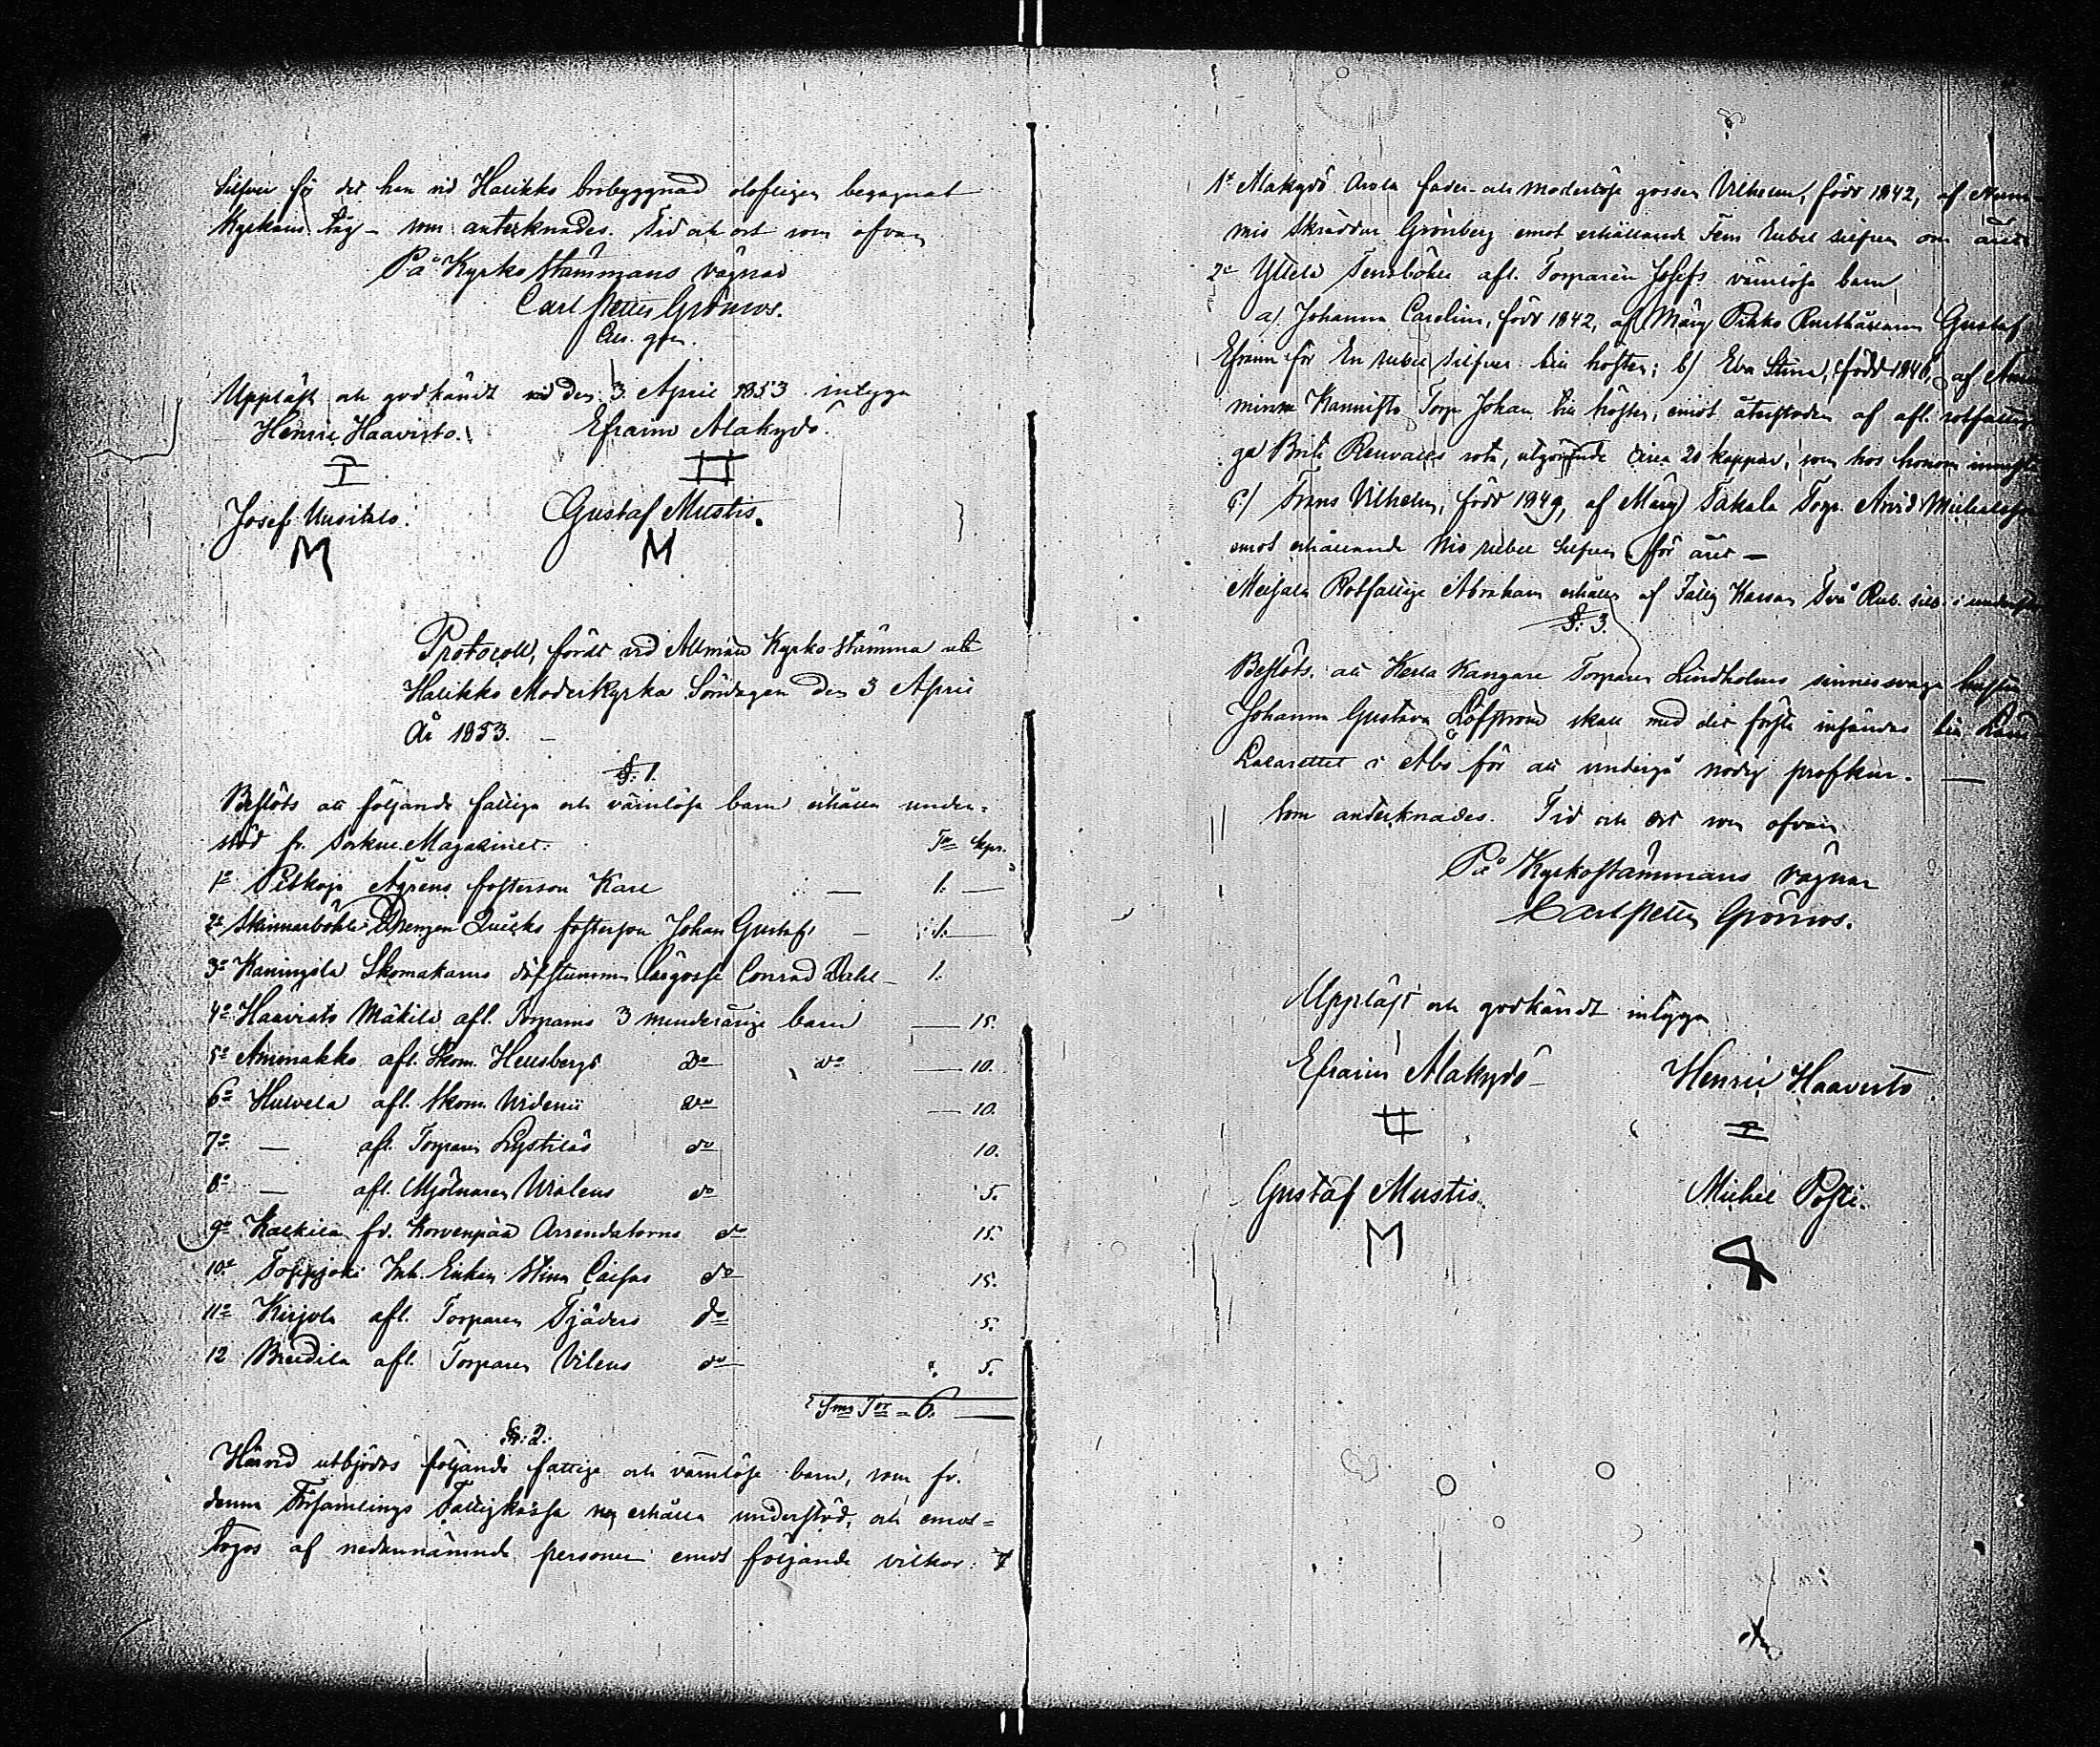 Silfver för det han vid Halikko brobyggnad olofligen begagnat
Kyrkans tåg – som antecknades. Tid och ort som ofvan
På Kyrko stämmans vägnar
Carl Petter Grönroos.
Upplåst och godkändt vid den 3 April 1853 intyga
Henric Haavisto. Efraim Alakydö.
Josef Uusitalo. Gustaf Mustis.
M M
Protocoll, fördt vid Allmän Kyrko stämma uti
Halikko Moderkyrka Söndagen den 3 April
År 1853.
§. 1.
Beslöts att följande fattiga och värnlösa barn erhålla under-
stöd fr. Sockne Magazinet. Tr kpr.
1o Pitkoja Ågrens fosterson Karl — 1. —
2o Skinnarböhle Drengen Quicks fosterson Johan Gustaf — 1. —
3o Kaningola Skomakarens döfstumma lärgosse Conrad Dahl – 1.
4o Haavisto Mäkilä afl. Torparens 3 minderåriga barn — 15.
5o Ammakko afl. Skom. Hellsbergs do do — 10.
6o Hulvela afl. Skom. Widenii do — 10.
7o — afl. Torparen Lystiläs do 10.
8o — afl. Mjölnaren Wialens do 5.
9o Kalkila fd. Korvenpää Arrendatorns do 15.
10o Toppjoki Inh. Enkan Stina Caisas do 15.
11o Kirjola afl. Torparen Tjäders do 5.
12 Bredila afl. Torparen Vilens do 5.
Sma Tr = 6. —
§: 2:
Härvid utbjödos följande fattige och värnlösa barn, som fr.
denna Församlings Fattigkassa nu erhålla understöd, och emot-
togos af nedannämnde personer emot följande vilkor:
1o Alakydö Arola fader- och moderlösa gossen Vilhelm, född 1842, af
mis Skräddar Grönberg emot erhållande Fem Rubel silfver om året
2o Yttelä Tennböhle afl. Torparen Josefs värnlösa barn,
a) Johanna Carolina, född 1842, af Märy Pikko Rusthållaren Gustaf
Efraim för En rubel silfver till hösten; b) Eva Stina, född 1846, af
minne Kannisto Torp. Johan till hösten, emot återstoden af afl. rotfatti-
ga Brita Renvalls rota, utgörande circa 20 kappar, som hos honom
c.) Frans Vilhelm, född 1849, af Märy Takala Torp. Arvid Michelsson
emot erhållande Nio rubel Silfver för året —
Meisala Rotfattige Abraham erhåller af Fattig Kassan Två Rub. silf. i
§. 3.
Beslöts, att Kesla Kangare Torparen Lindholms sinnessvaga hustru
Johanna Gustava Löfström skall med det första insändas till Läns-
Lazarettet i Åbo för att undergå nödig profkur. —
Som antecknades. Tid och ort som ofvan
På Kyrkostämmans vägnar
Carl Petter Grönroos.
Uppläst och godkändt intyga
Efraim Alakydö Henric Haavisto
Gustaf Mustis. Michel Posti.
M